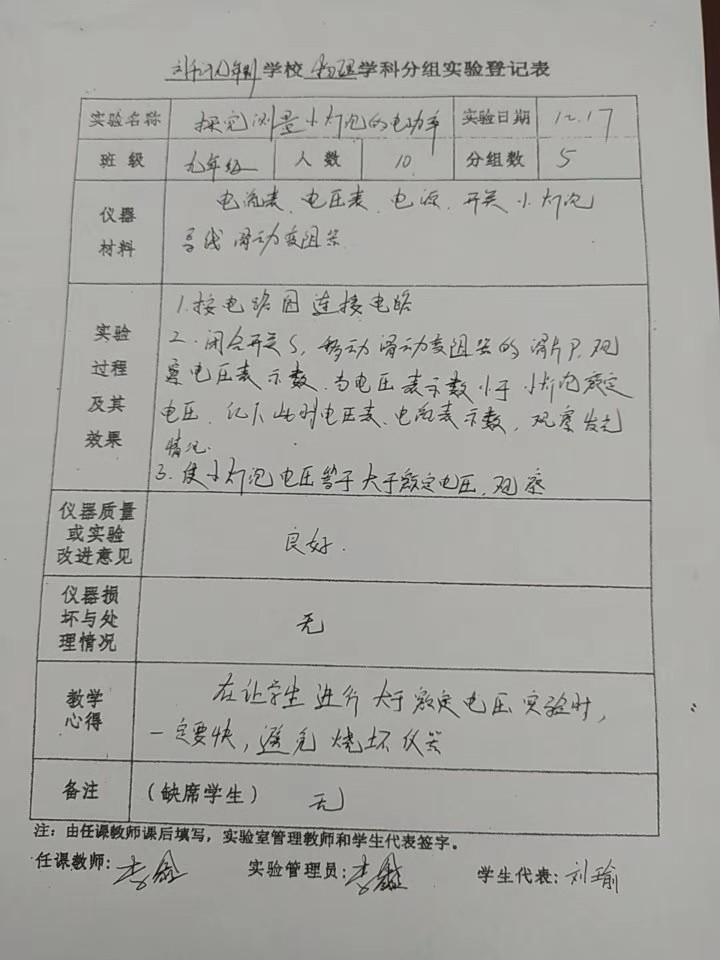 九年制学校 物理学科分组实验登记表
实验名称 探究测量小灯泡的电功率 实验日期 12.17
班级 九年级 人数 10 分组数 5
仪器材料 电流表、电压表、电源、开关 小灯泡
导线 滑动变阻器
实验过程及其效果 1.按电路图连接电路
2.闭合开关S,移动滑动变阻器的滑片P,观
察电压表示数,当电压表示数小于小灯泡额定
电压,记下此时电压表、电流表示数,观察发光
情况.
3.使小灯泡电压等于大于额定电压,观察
仪器质量或实验改进意见 良好.
仪器损坏与处理情况 无
教学心得 在让学生进行大于额定电压实验时,
一定要快,避免烧坏仪器
备注 (缺席学生) 无
注:由任课教师课后填写,实验室管理教师和学生代表签字。
任课教师:李 实验管理员:李 学生代表:刘瑜